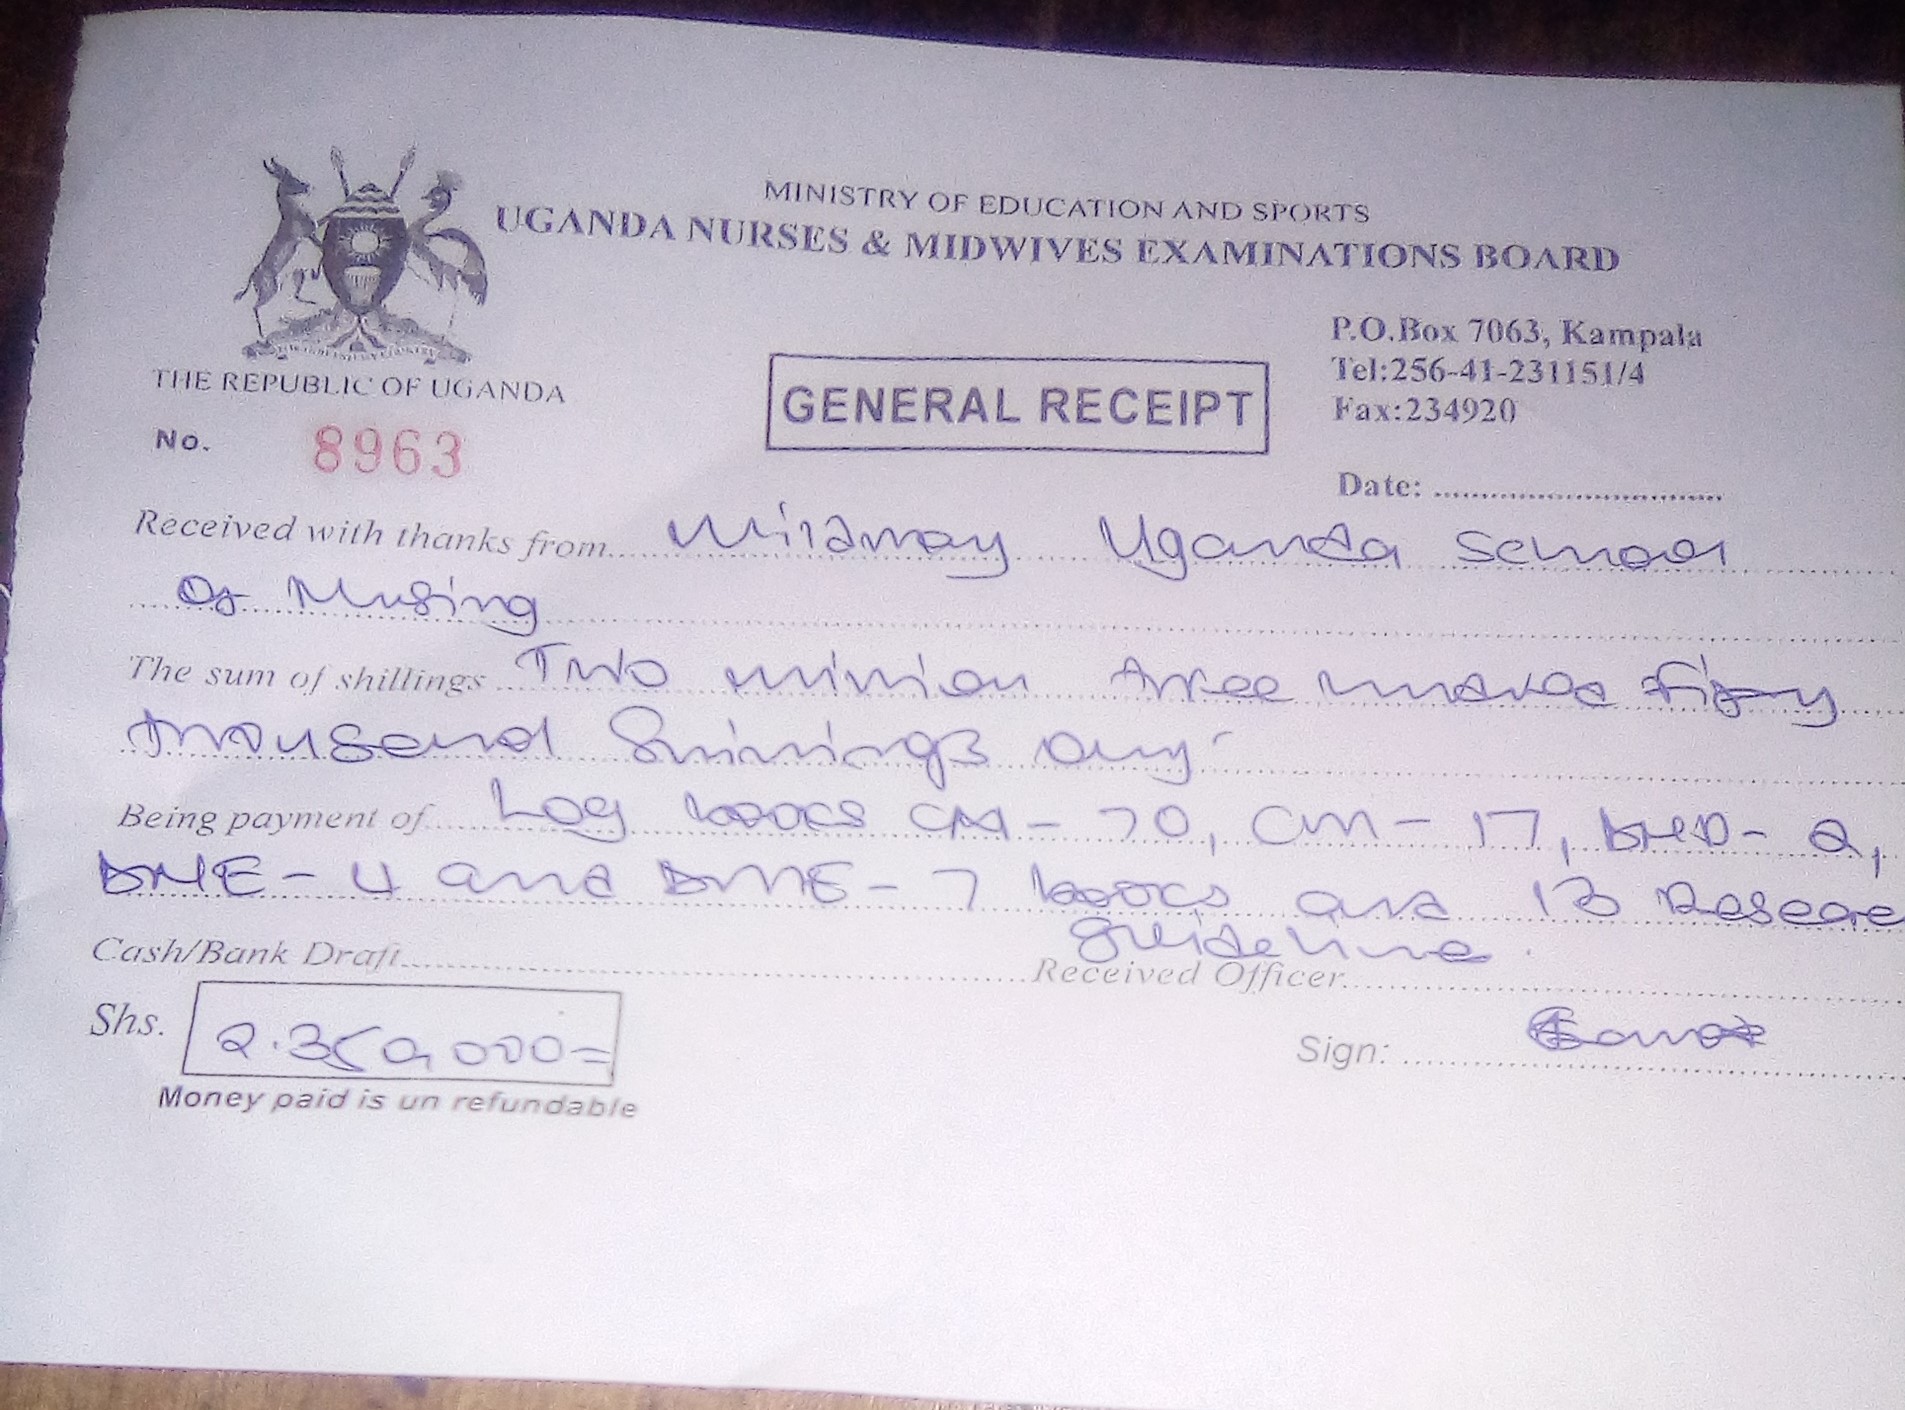 MINISTRY OF EDUCATION AND SPORTS
UGANDA NURSES & MIDWIVES EXAMINATIONS BOARD
THE REPUBLIC OF UGANDA
P.O.Box 7063, Kampala
Tel:256-41-231151/4
Fax:234920
GENERAL RECEIPT
No. 8963
Date:
Received with thanks from Mildmay Uganda School
of Nursing
The sum of shillings Two million three hundred fifty
thousand Shillings only
Being payment of Log books CN - 70, CM - 17, DND - 2,
DNE - 4 and DME - 7 books and 13 Researc
guideline.
Cash/Bank Draft
Received Officer
Shs. 2.350,000=
Sign:
Money paid is un refundable